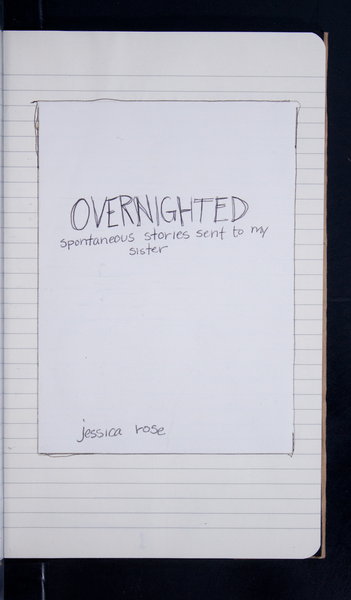 OVERNIGHTED
spontaneous stories sent to my
sister
jessica rose